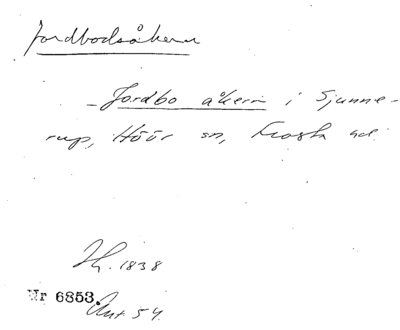 Jordbodsåkern
– Jordbo åkern i Sjunne-
rup, Höör sn, Frosta hd.
Jh. 1838
Nr 6853.
Ant. 54.